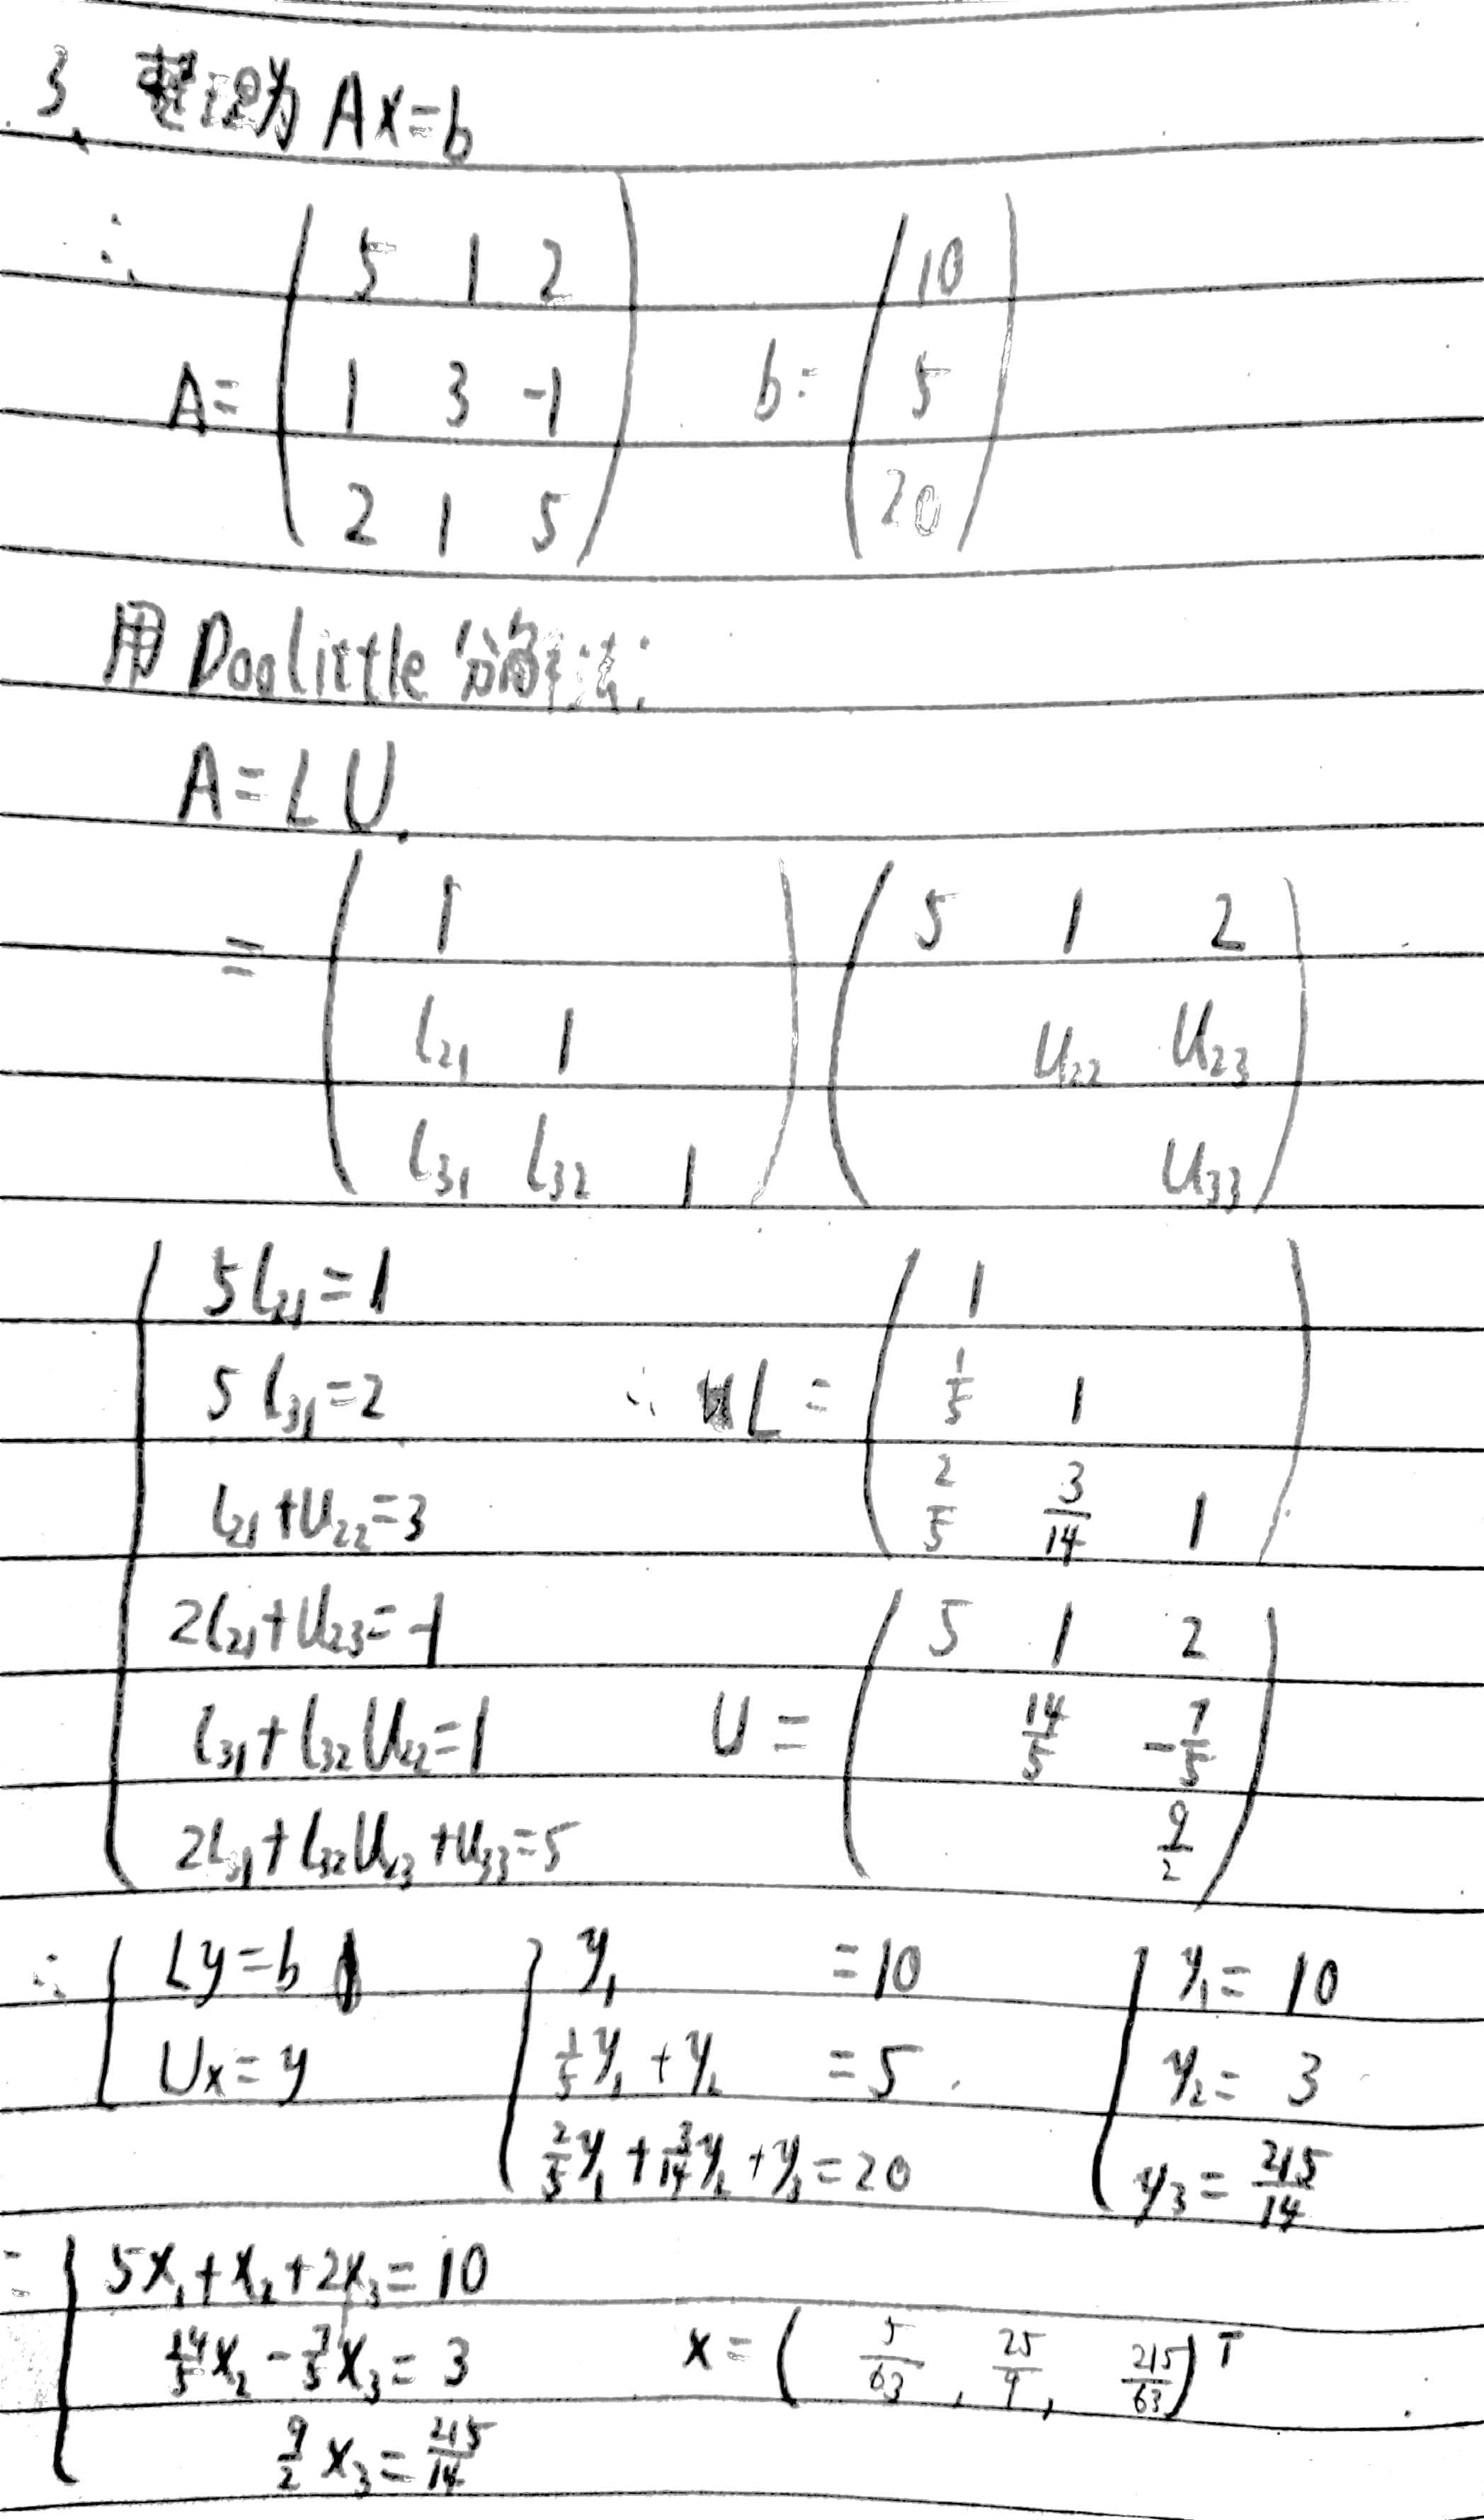 3. 整理为 Ax=b
∴
A= ( 5 1 2
1 3 -1
2 1 5 ) b= ( 10
5
20 )
用 Doolittle 分解法:
A=LU.
= ( 1
l21 1
l31 l32 1 ) ( 5 1 2
u22 u23
u33 )
{ 5l21=1
5l31=2
l21+u22=3
2l21+u23=-1
l31+l32u22=1
2l31+l32u23+u33=5
∴ L= ( 1
1/5 1
2/5 3/14 1 )
U= ( 5 1 2
14/5 -7/5
9/2 )
∴ { Ly=b
Ux=y
{ y1 =10
1/5y1+y2 =5
2/5y1+3/14y2+y3=20
{ y1=10
y2=3
y3=215/14
{ 5x1+x2+2x3=10
14/5x2-7/5x3=3
9/2x3=215/14
x=( 5/63, 25/9, 215/63)T